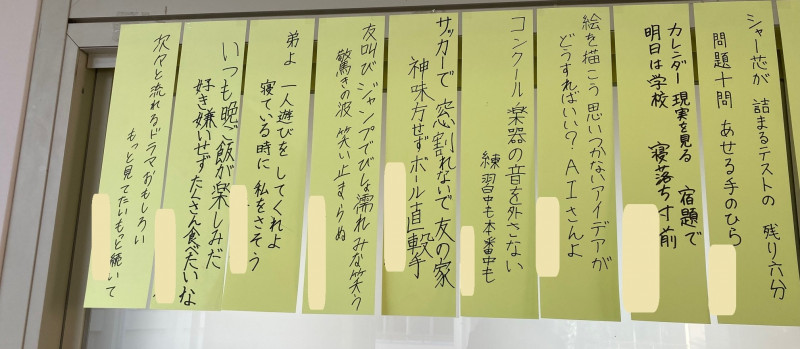 シャー芯が 詰まるテストの 残り六分
問題十問 あせる手のひら
カレンダー 現実を見る 宿題で
明日は学校 寝落ち寸前
絵を描こう 思いつかないアイデアが
どうすればいい? AIさんよ
コンクール 楽器の音を外さない
練習中も本番中も
サッカーで 窓割れないで 友の家
神味方せずボール直撃
友叫び ジャンプでびしょ濡れ みな笑う
驚きの波 笑い止まらぬ
弟よ 一人遊びを してくれよ
寝ている時に 私をさそう
いつも晩ご飯が楽しみだ
好き嫌いせずたくさん食べたいな
次々と流れるドラマおもしろい
もっと見てたいもっと続いて